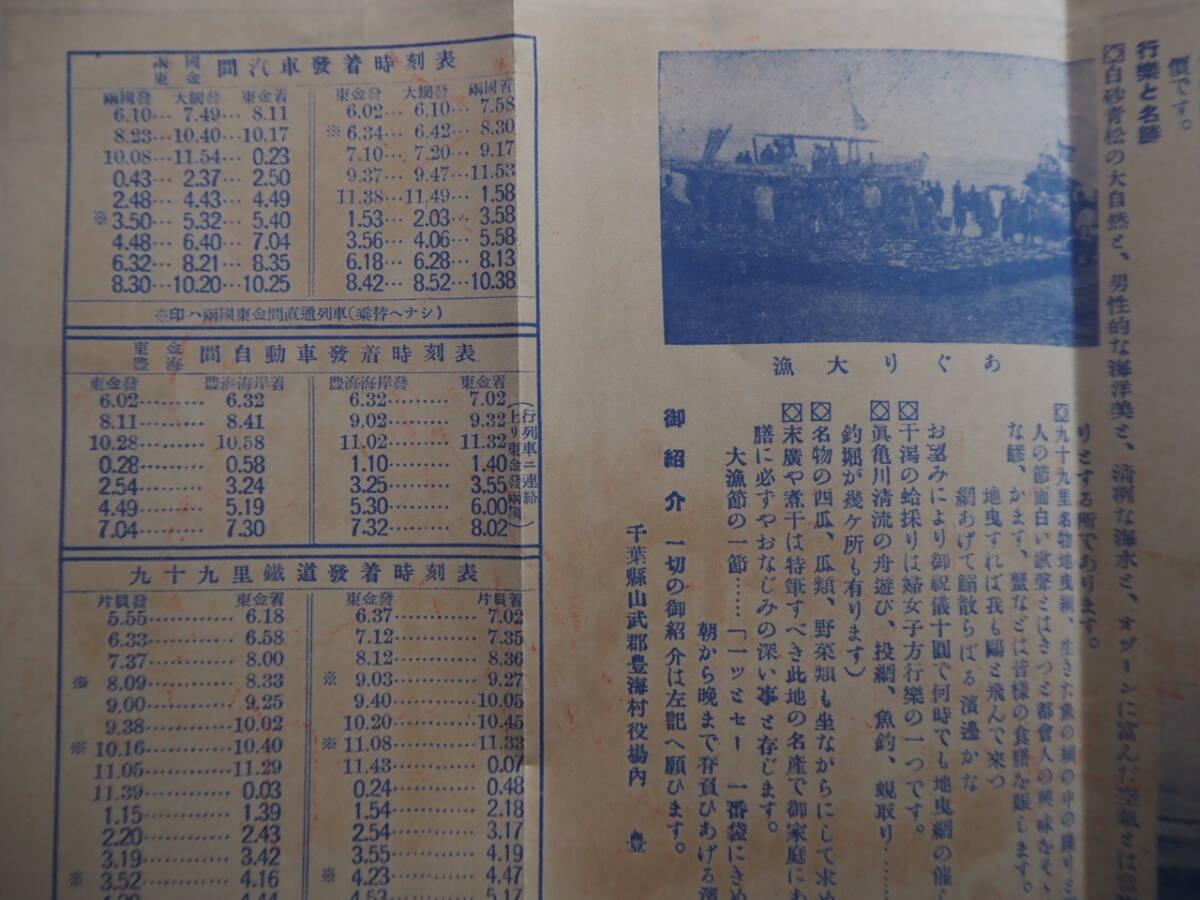 價です。
行樂と名勝
◇白砂靑松の大自然と、男性的な海洋美と、淸冽な海水と、オゾーンに富んだ空氣とは當
りとする所であります。
◇九十九里名物地曳網、生きた魚の網の中の踊りと
人の節面白い歌聲とはきつと都會人の興味をそゝ
な鰺、かます、蟹などは皆樣の食膳を賑します。
地曳すれば我も鷗と飛んで來つ
網あげて鰯散らばる濱邊かな
お望みにより御祝儀十圓で何時でも地曳網の催し
◇干潟の蛤採りは婦女子方行樂の一つです。
◇眞亀川淸流の舟遊び、投網、魚釣、蜆取り……
釣堀が幾ケ所も有ります)
◇名物の西瓜、瓜類、野菜類も坐ながらにして求め
◇末廣や煮干は特筆すべき此地の名產で御家庭にお
膳に必ずやおなじみの深い事と存じます。
大漁節の一節……「一ッとセー 一番袋にきめ
朝から晩まで脊負ひあげる濱
御紹介 一切の御紹介は左記へ願ひます。
千葉縣山武郡豊海村役場內 豊
あぐり大漁
兩國東金間汽車發着時刻表
兩國發 大網發 東金着
6.10…7.49…8.11
8.23…10.40…10.17
10.08…11.54…0.23
0.43…2.37…2.50
2.48…4.43…4.49
※3.50…5.32…5.40
4.48…6.40…7.04
6.32…8.21…8.35
8.30…10.20…10.25
東金發 大網發 兩國着
6.02…6.10…7.58
※6.34…6.42…8.30
7.10…7.20…9.17
9.37…9.47…11.53
11.38…11.49…1.58
1.53…2.03…3.58
3.56…4.06…5.58
6.18…6.28…8.13
8.42…8.52…10.38
※印ハ兩國東金間直通列車(乘替ヘナシ)
東金豊海間自動車發着時刻表
東金發 豊海海岸着
6.02………6.32
8.11………8.41
10.28………10.58
0.28………0.58
2.54………3.24
4.49………5.19
7.04………7.30
豊海海岸發 東金着
6.32………7.02
9.02………9.32
11.02………11.32
1.10………1.40
3.25………3.55
5.30………6.00
7.32………8.02
(上リ東金發兩國
行列車ニ連絡)
九十九里鐵道發着時刻表
片貝發 東金着
5.55…………6.18
6.33…………6.58
7.37…………8.00
※8.09…………8.33
9.00…………9.25
9.38…………10.02
※10.16…………10.40
11.05…………11.29
11.39…………0.03
1.15…………1.39
2.20…………2.43
3.19…………3.42
※3.52…………4.16
東金發 片貝着
6.37…………7.02
7.12…………7.35
8.12…………8.36
※9.03…………9.27
9.40…………10.05
10.20…………10.45
※11.08…………11.33
11.43…………0.07
0.24…………0.48
1.54…………2.18
2.54…………3.17
3.55…………4.19
※4.23…………4.47
4.53…………5.17